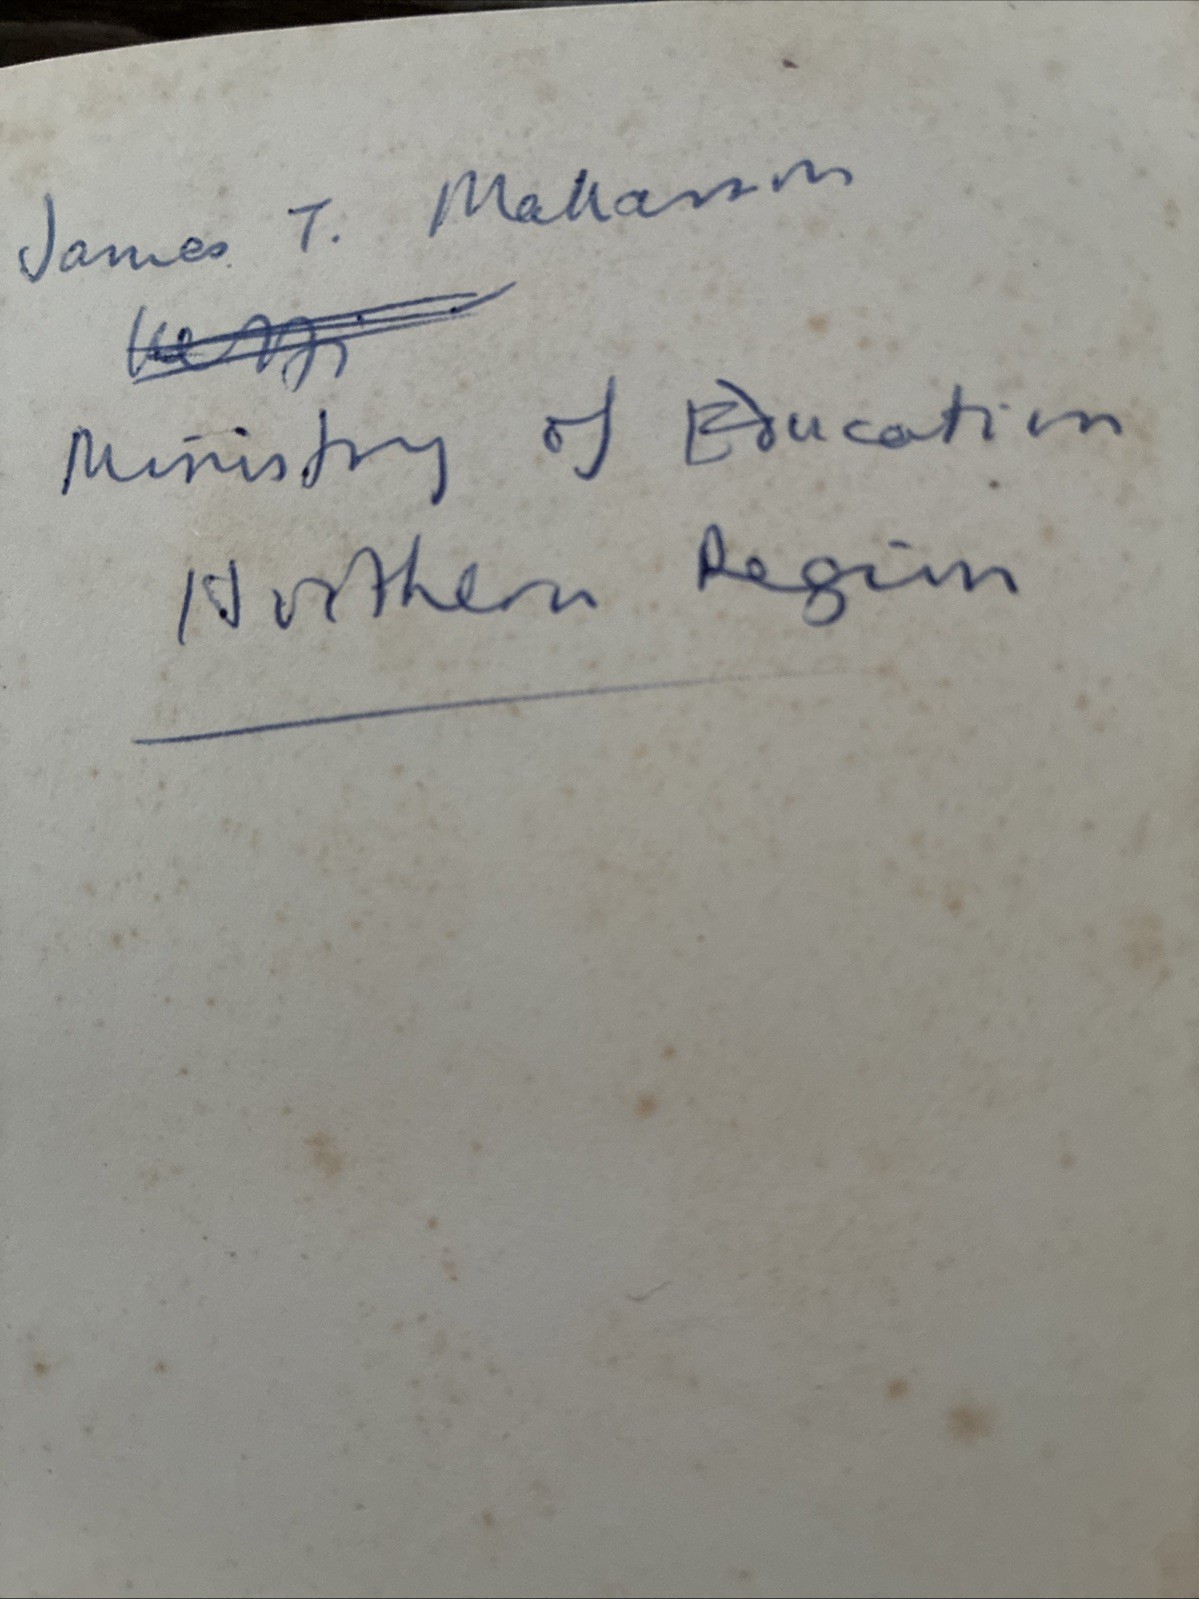 James T.
Ministry of Education
Northern Region